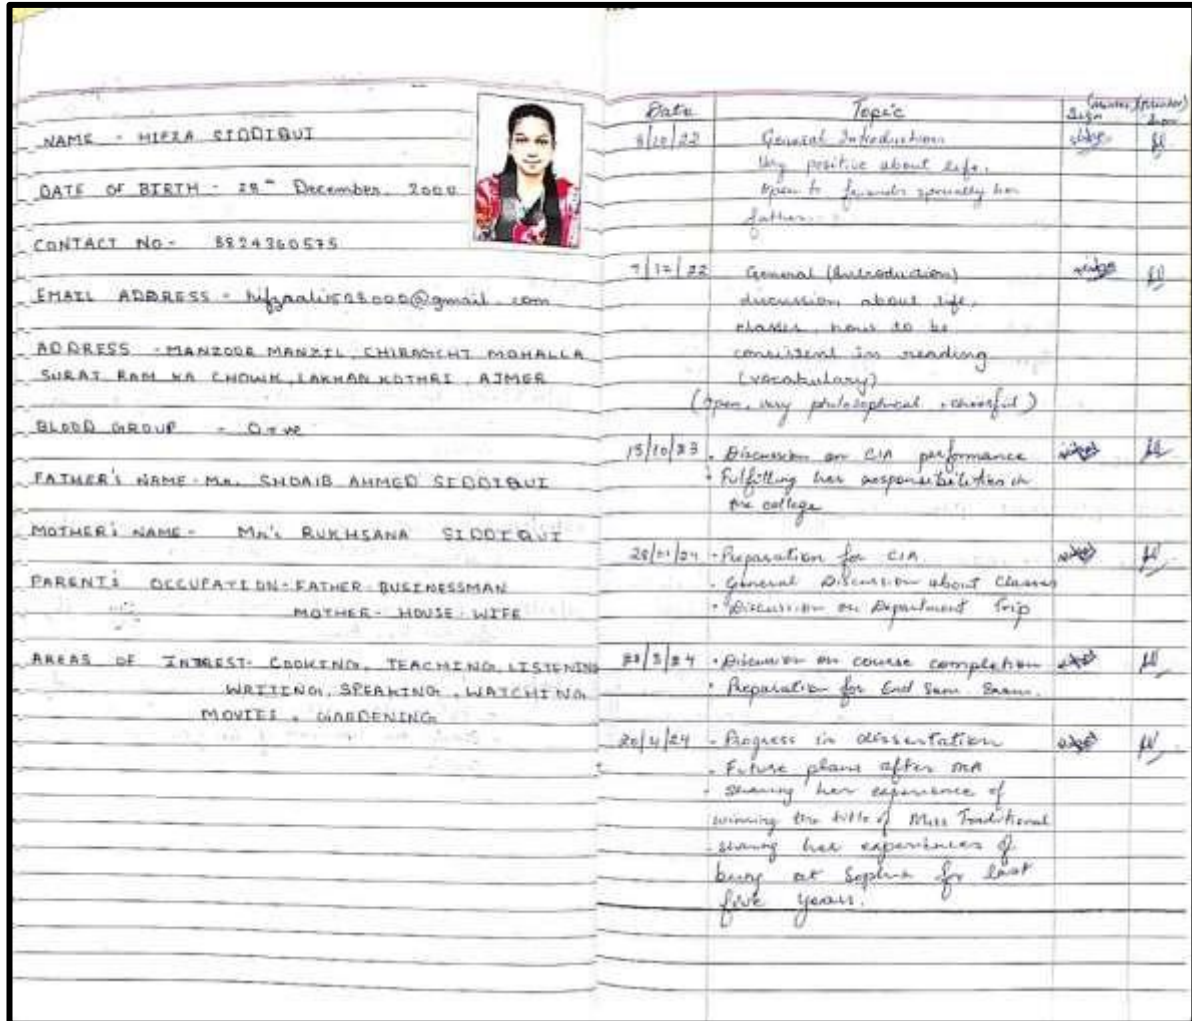 NAME - HIFZA SIDDIQUI
DATE OF BIRTH - 28th December, 2000
CONTACT NO - 8824360575
EMAIL ADDRESS - @gmail.com
ADDRESS - MANZOOR MANZIL, MOHALLA
SURAT RAM KA CHOWK, LAKHAN KOTHRI, AJMER
BLOOD GROUP - O+ve
FATHER'S NAME - Mr. SHOAIB AHMED SIDDIQUI
MOTHER'S NAME - RUKHSANA SIDDIQUI
PARENT'S OCCUPATION - FATHER - BUSINESSMAN
MOTHER - HOUSE-WIFE
AREAS OF INTREST - COOKING, TEACHING, LISTENING
WRITING, SPEAKING, WATCHING
MOVIES, GARDENING
Date Topic Sign
General Introduction
Very positive about life.
Open to specially her
father.
General (Introduction)
discussion about life,
classes, how to be
consistent in reading
(vocabulary)
(Open, very philosophical, cheerful)
15/10/23 Discussion on CIA performance
Fulfilling her responsibilities in
the college
- Preparation for CIA.
- General Discussion about Classes
- Discussion on Department Trip
Discussion on course completion
Preparation for End Sem. Exam.
20/4/24 - Progress in dissertation
- Future plans after MA
- Sharing her experience of
winning the title of Miss Traditional
- sharing her experiences of
being at Sophia for last
five years.